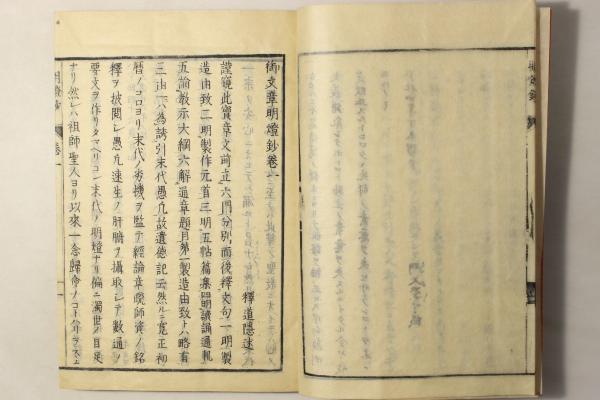 御文章明燈鈔卷一
釋道隱述
謹竊此寶章文前立六門分別而後釋文句一明製
造由致二明製作元首三明五帖篇集四明讀誦通軌
五論敎示大綱六解通章題目第一製造由致トハ略有
三由一ハ爲誘引末代愚凡故遺德記云然ルニ寛正初
曆ノコロヨリ末代ノ劣機ヲ鑑テ經論章疏師資ノ銘
釋ヲ披閱シ愚凡速生ノ肝腑ヲ攝取シテ數通ノ
要文ヲ作リタマヘリコレ末代ノ明燈ナリ偏ニ濁世ノ目足
ナリ然レハ祖師聖人ヨリ以來一念歸命ノコト
明燈鈔
卷一